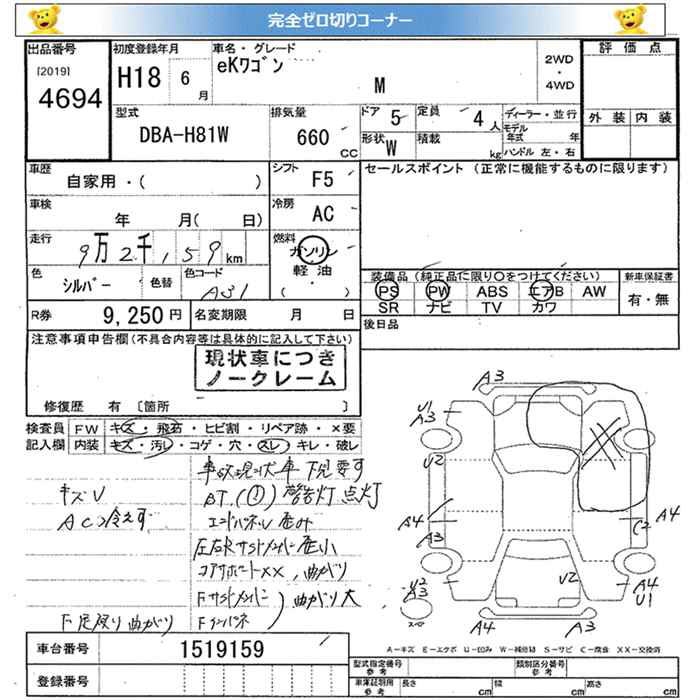 完全ゼロ切りコーナー
出品番号
[2019]
4694
初度登録年月
H18 6月
車名・グレード
eKワゴン
M
2WD
・
4WD
評価点
外装 内装
型式
DBA-H81W
排気量
660
CC
ドア 5
定員 4人
形状 W
積載 kg
ディーラー・並行
モデル年式 年
ハンドル 左・右
車歴
自家用・( )
シフト F5
車検
年 月( 日)
冷房 AC
走行
9万2千,159km
燃料
ガソリン
軽油
( ・ )
色
シルバー
色替
色コード
A31
R券 9,250円
名変期限 月 日
セールスポイント (正常に機能するものに限ります)
装備品 (純正品に限り○をつけてください)
PS PW ABS エアB AW
SR ナビ TV カワ
新車保証書
有・無
後日品
注意事項申告欄(不具合内容等は具体的に記入して下さい)
現状車につき
ノークレーム
修復歴 有 〔箇所 〕
検査員
記入欄
FW キズ・飛石・ヒビ割・リペア跡・×要
内装 キズ・汚レ・コゲ・穴・スレ・キレ・破レ
キズU
AC冷えず
事故現状車 下見要す
警告灯点灯
エンドパネル歪み
左右Rサイドメンバー歪小
コアサポートXX、曲がり
Fサイドメンバー
Fインパネ
曲がり大
F足廻り曲がり
A3
U1
A3
U2
A4
A3
U2
A3
A4
A3
U2
C2
A4
A4
U1
A-キズ E-エクボ U-凹み W-補修跡 S-サビ C-腐食 XX-交換済
車台番号 1519159
登録番号
型式指定番号
参考
類別区分番号
参考
車庫証明用
参考
長さ cm
幅 cm
高さ cm